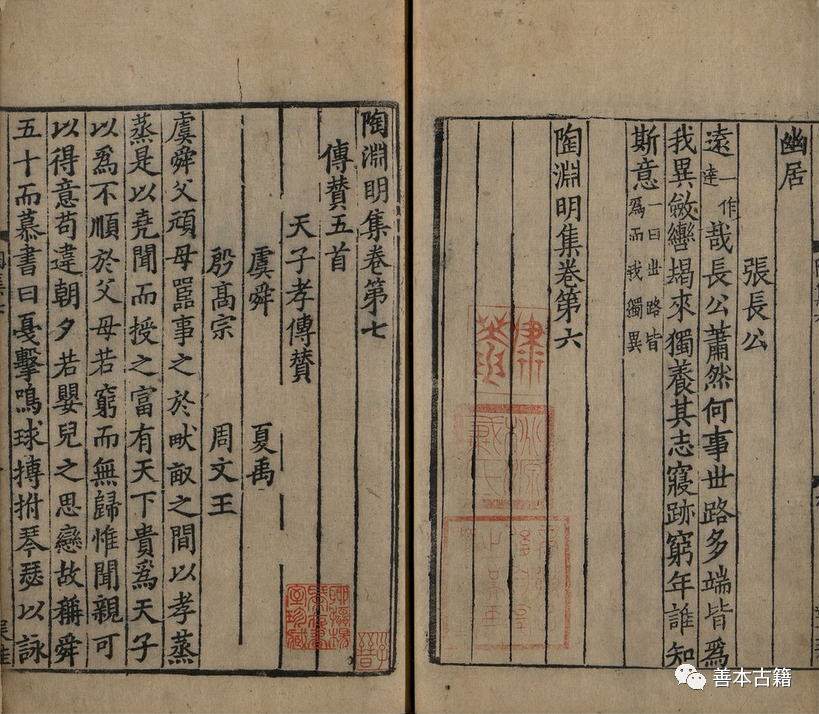 幽居
張長公
遠一作達哉長公蕭然何事丗路多端皆爲
我異斂轡朅來獨養其志寢跡窮年誰知
斯意一曰丗路皆爲而我獨異
陶淵明集卷第六
陶淵明集卷第七
傳贊五首
天子孝傳贊
虞舜 夏禹
殷髙宗 周文王
虞舜父頑母嚚事之於畎畝之間以孝蒸
蒸是以堯聞而授之富有天下貴爲天子
以爲不順於父母若窮而無歸惟聞親可
以得意苟違朝夕若嬰兒之思戀故稱舜
五十而慕書曰戞擊鳴球搏拊琴瑟以詠
善本古籍